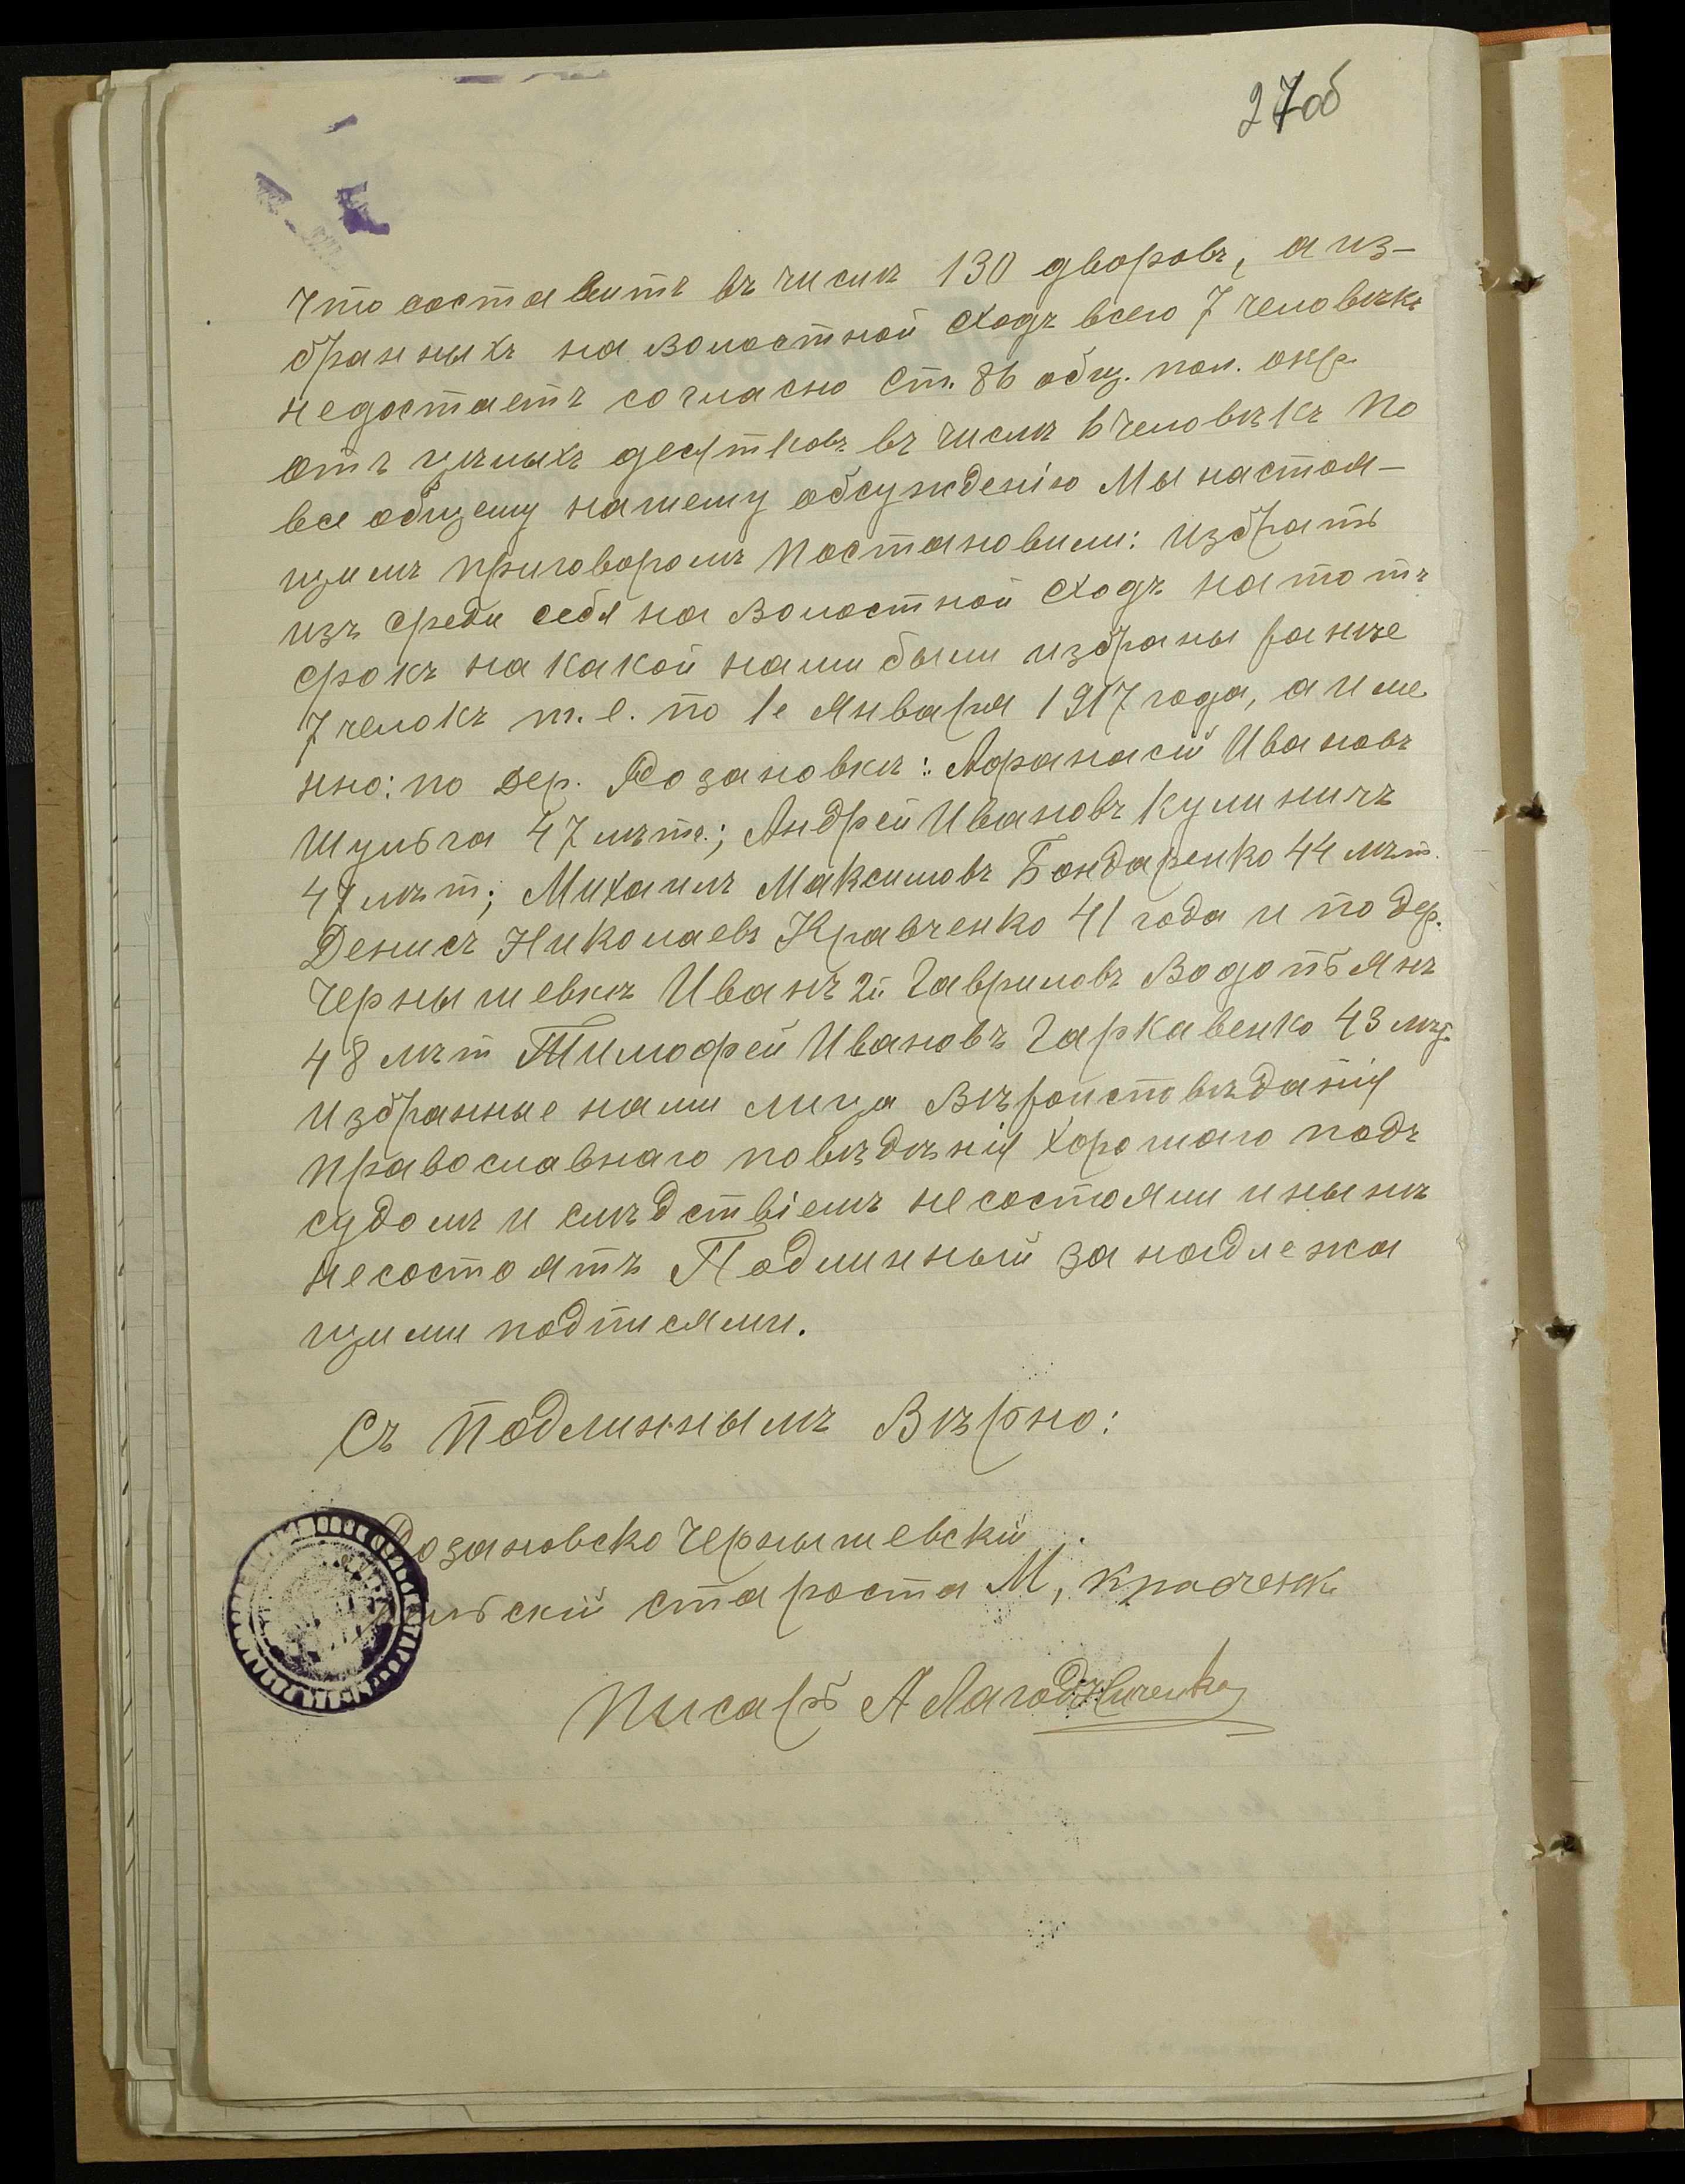 27об
что составитъ въ числѣ 130 дворовъ, а из-
бранныхъ на волостной Сходъ всего 7 человѣкъ
недостаетъ согласно Ст. 86 общ. пол. окр.
отъ цѣлыхъ десятковъ въ числѣ 6 человѣкъ По
все общему нашему обсужденію Мы настоя-
щимъ приговоромъ Постановили: избрать
изъ среди себя на Волостной Сходъ на тотъ
срокъ на какой нами были избраны ранѣе
7 челокъ т. е. по 1е Января 1917 года, а име
нно: по Дер. Розановкѣ: Афанасій Ивановъ
Шульга 47 лѣтъ; Андрей Ивановъ Кулиничъ
47 лѣт; Михаилъ Максимовъ Бондаренко 44 лѣт.
Денисъ Николаевъ Кравченко 41 года и по дер.
Чернышевкѣ Иванъ 2й Гавриловъ Водопьянъ
48 лѣт Тимофей Ивановъ Гаркавенко 43 лѣт.
избранные нами лица Вѣроистовѣданія
православнаго повѣдѣнія хорошаго подъ
судомъ и слѣдствіемъ не состояли и нынѣ
не состоятъ Подлинный за надлежа
щими подписями.
Съ Подлиннымъ Вѣрно:
Розановско Чернышевскій
староста М, Кравченк
Писарь А